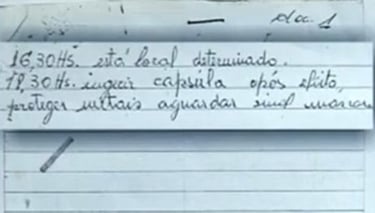 doc 1
16,30Hs. está local determinado.
18,30Hs. ingerir capsúla após efeito,
proteger metais aguardar sinal mascara